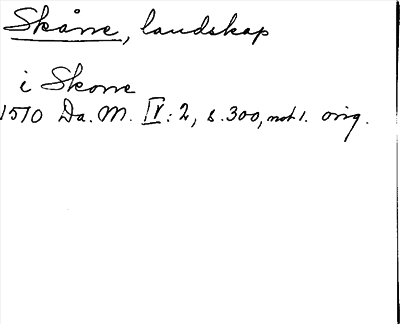 Skåne, landskap
i Skone
1510 Da. M. IV: 2, s. 300, not 1. orig.